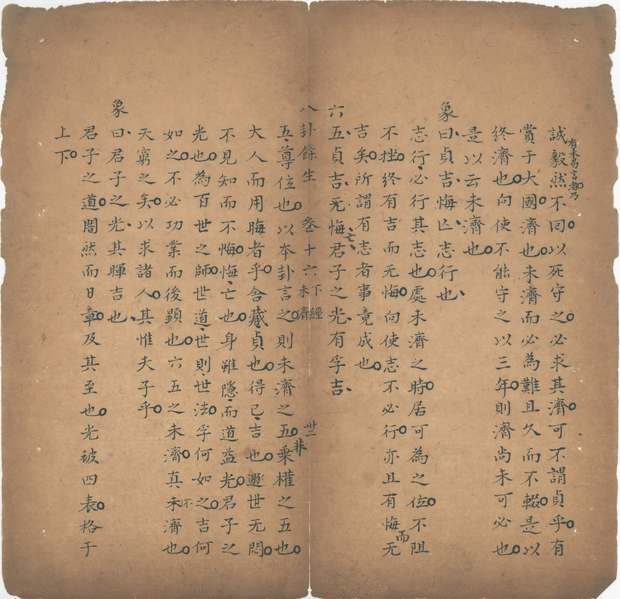 誠毅然不回以死守之必求其濟可不謂貞乎有
賞于大國濟也未濟而必為難且久而不輟是以
終濟也向使不能守之以三年則濟尚未可必也
是以云未濟也
象曰貞吉悔亾志行也
志行必行其志也處未濟之時居可為之位不阻
不挫終有吉而无悔向使志不必行亦且有悔而无
吉矣所謂有志者事竟成也
六五貞吉无悔君子之光有孚吉
八卦餘生 卷十六 下經 未濟 廿一
五尊位也以本卦言之則未濟之五乘權之五也
大人而用晦者乎含藏貞也得已吉也遯世无悶
不見知而不悔悔亡也身雖隱而道益光君子之
光也為百世之師世道世則世法孚何如之吉何
如之不必功業而後顯也六五之未濟真不濟也
天窮之矣以求諸人其惟夫子乎
象曰君子之光其暉吉也
君子之道闇然而日章及其至也光被四表格于
上下